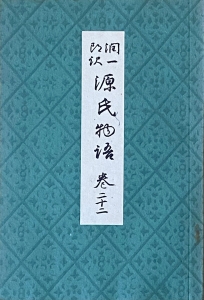 潤一
郎訳
源氏物語 巻二十二